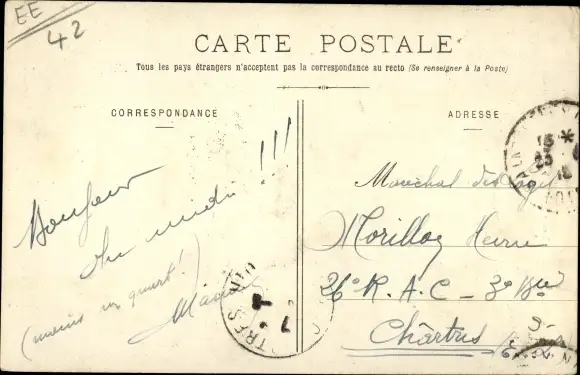 EE
42
CARTE POSTALE
Tous les pays étrangers n'acceptent pas la correspondance au recto (Se renseigner à la Poste)
CORRESPONDANCE
Bonjour
du midi !!!
(moins un quart!)
ADRESSE
Maréchal des logis
Morilloz
26e R.A.C - 3e Bie
Chârtres